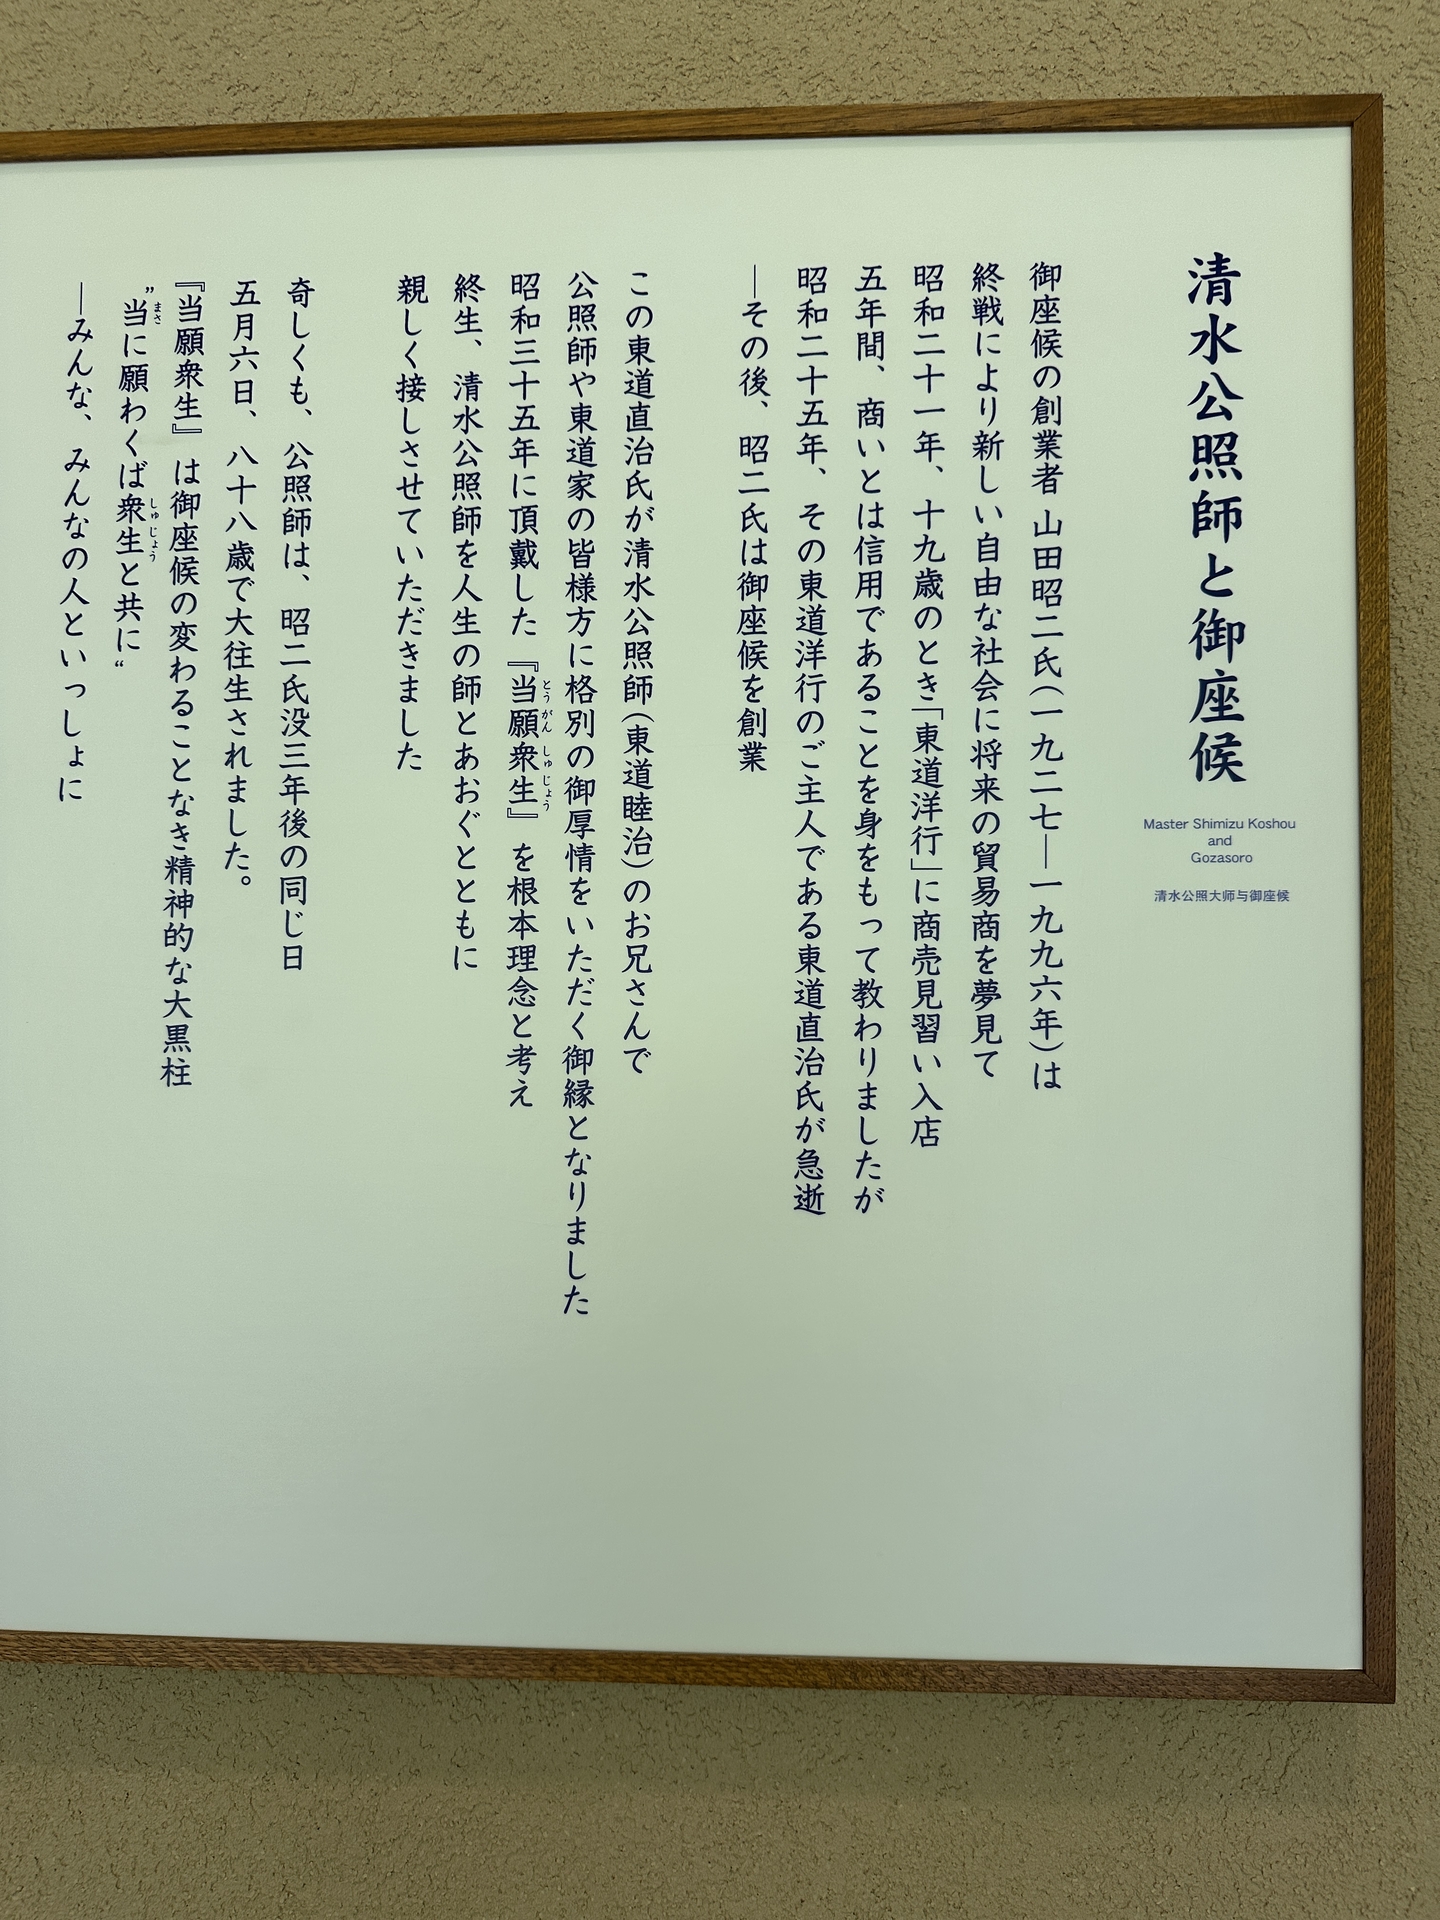 清水公照師と御座候
Master Shimizu Koshou
and
Gozasoro
清水公照大师与御座候
御座候の創業者 山田昭二氏(一九二七―一九九六年)は
終戦により新しい自由な社会に将来の貿易商を夢見て
昭和二十一年、十九歳のとき「東道洋行」に商売見習い入店
五年間、商いとは信用であることを身をもって教わりましたが
昭和二十五年、その東道洋行のご主人である東道直治氏が急逝
―その後、昭二氏は御座候を創業
この東道直治氏が清水公照師(東道睦治)のお兄さんで
公照師や東道家の皆様方に格別の御厚情をいただく御縁となりました
昭和三十五年に頂戴した『当願衆生』を根本理念と考え
とうがんしゅじょう
終生、清水公照師を人生の師とあおぐとともに
親しく接しさせていただきました
奇しくも、公照師は、昭二氏没三年後の同じ日
五月六日、八十八歳で大往生されました。
『当願衆生』は御座候の変わることなき精神的な大黒柱
”当に願わくば衆生と共に“
まさ しゅじょう
―みんな、みんなの人といっしょに